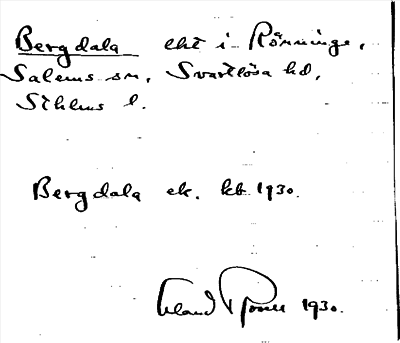 Bergdala lht i Rönninge,
Salems sn, Svartlösa hd,
Sthlms l.
Bergdala ek. kb 1930.
Erland Rosell 1930.